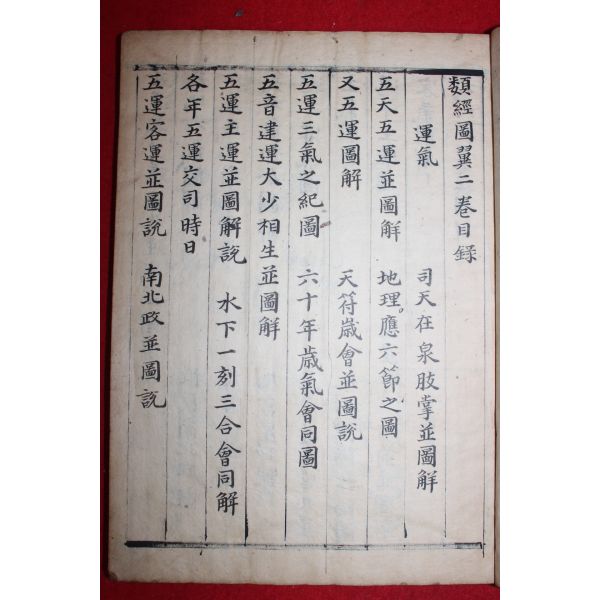 類經圖翼二卷目錄
運氣　司天在泉肢掌並圖解
五天五運並圖解　地理應六節之圖
又五運圖解　天符歲會並圖說
五運三氣之紀圖　六十年歲氣會同圖
五音建運大少相生並圖解
五運主運並圖解說　水下一刻三合會同解
各年五運交司時日
五運客運並圖説　南北政並圖説